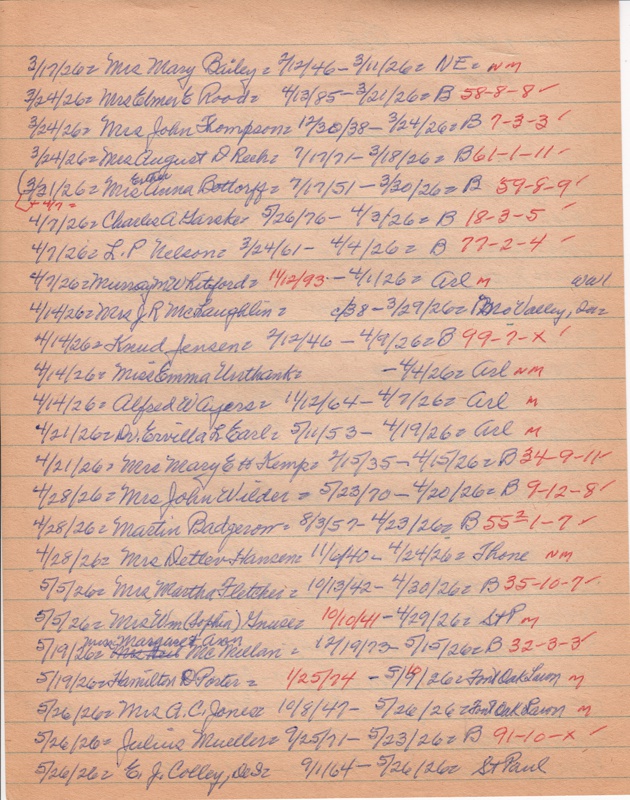 3/17/26= Mrs Mary Bailey= 7/12/46 - 3/11/26= NE= NM
3/24/26= Mrs Elmer E Rood= 4/13/85 - 3/21/26= B 58-8-8 ✓
3/24/26= Mrs John Thompson= 12/30/38 - 3/24/26= B 7-3-3 ✓
3/24/26= Mrs August D Reek= 7/17/71 - 3/18/26= B 61-1-11 ✓
Esther
(3/31/26= Mrs Anna Bottorff= 7/17/51 - 3/30/26= B 59-8-9 ✓
+ 4/7=
4/7/26= Charles A 5/26/76 - 4/3/26= B 18-3-5 ✓
4/7/26= L.P Nelson= 3/24/61 - 4/4/26= B 77-2-4 ✓
4/7/26= Murray M Whitford= 11/12/93 - 4/1/26= Arl M
4/14/26= Mrs J R McLaughlin= c/38 - 3/29/26= Mo Valley, Ia=
4/14/26= Knud Jensen= 2/12/46 - 4/9/26= B 99-7-X ✓
4/14/26= Miss Emma Unthank= - 4/4/26= Arl NM
4/14/26= Alfred W Ayers= 11/12/64 - 4/7/26= Arl M
4/21/26= Dr. Ervilla L Earl= 5/11/53 - 4/19/26= Arl M
4/21/26= Mrs Mary E H Kemp= 2/15/35 - 4/15/26= B 34-9-11 ✓
4/28/26= Mrs John Wilder= 5/23/70 - 4/20/26= B 9-12-8 ✓
4/28/26= Martin Badgerow= 8/3/57 - 4/23/26= B 55²-1-7 ✓
4/28/26= Mrs Detlev Hansen= 11/6/40 - 4/24/26= Thone NM
5/5/26= Mrs Martha Fletcher= 10/13/42 - 4/30/26= B 35-10-7 ✓
5/5/26= Mrs Wm (Sophia) Gruse= 10/10/41 - 4/29/26= St P M
Miss Margaret Avon
5/19/26= McMillan= 12/19/73 - 5/15/26= B 32-3-3 ✓
5/19/26= Hamilton D Porter= 1/25/74 - /26= Oak Lawn M
5/26/26= Mrs A.C. Jones= 10/8/47 - 5/26/26= Oak Lawn M
5/26/26= Julius Mueller= 9/25/71 - 5/23/26= B 91-10-X ✓
5/26/26= E. J. Colley, 9/1/64 - 5/26/26= St Paul